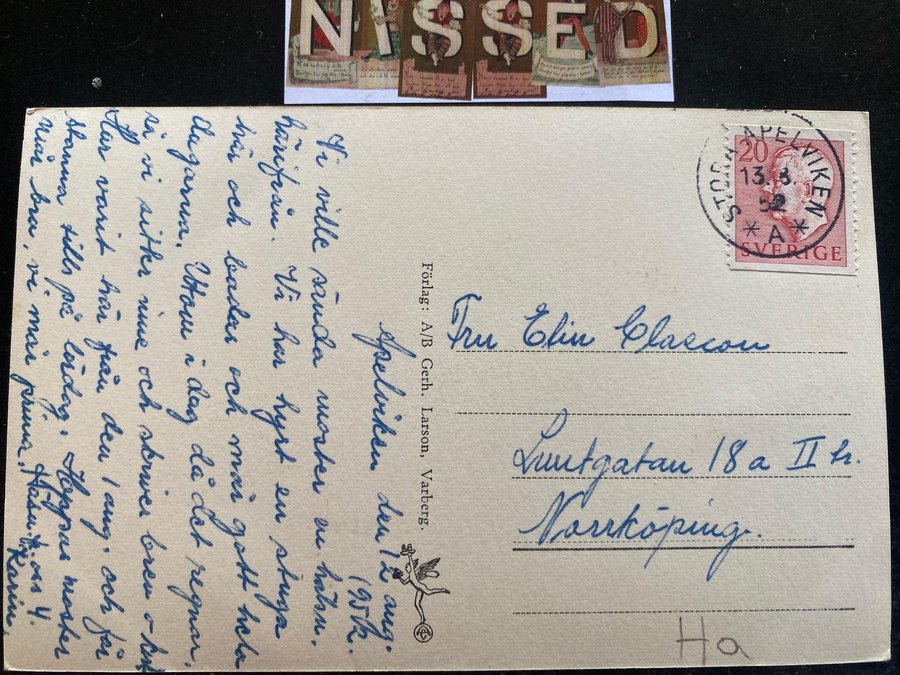 NISSED
Apelviken den 12 aug.
1952.
Vi ville sända moster en hälsn.
härifrån. Vi har hyrt en stuga
här och badar och mår gott hela
dagarna. Utom i dag då det regnar,
så vi sitter inne och skriver brev o kort
Har varit här från den 1 aug. och får
stanna tills på lördag. Hoppas moster
mår bra, vi mår prima. Häsn. fr. oss 4.
Karin
Förlag: A/B Gerh. Larson, Varberg.
20
SVERIGE
STORA APELVIKEN
13. 8.
52
* A *
Fru Elin Classon
Luntgatan 18 a II tr.
Norrköping.
Ha